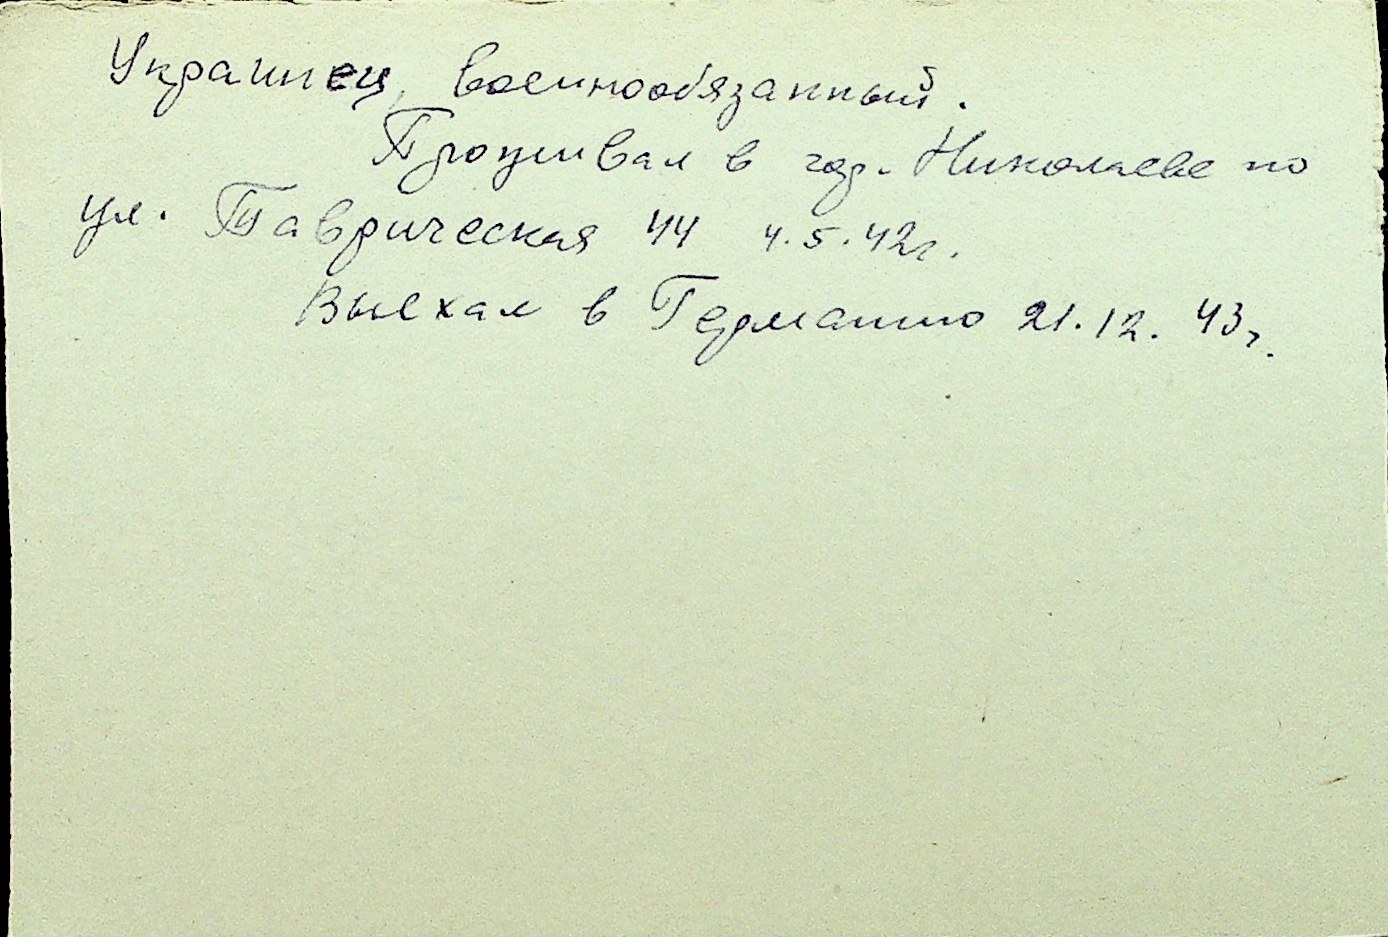 Украинец, военнообязанный.
Проживал в гор. Николаеве по
ул. Таврическая 44 4.5.42г.
Выехал в Германию 21.12.43г.